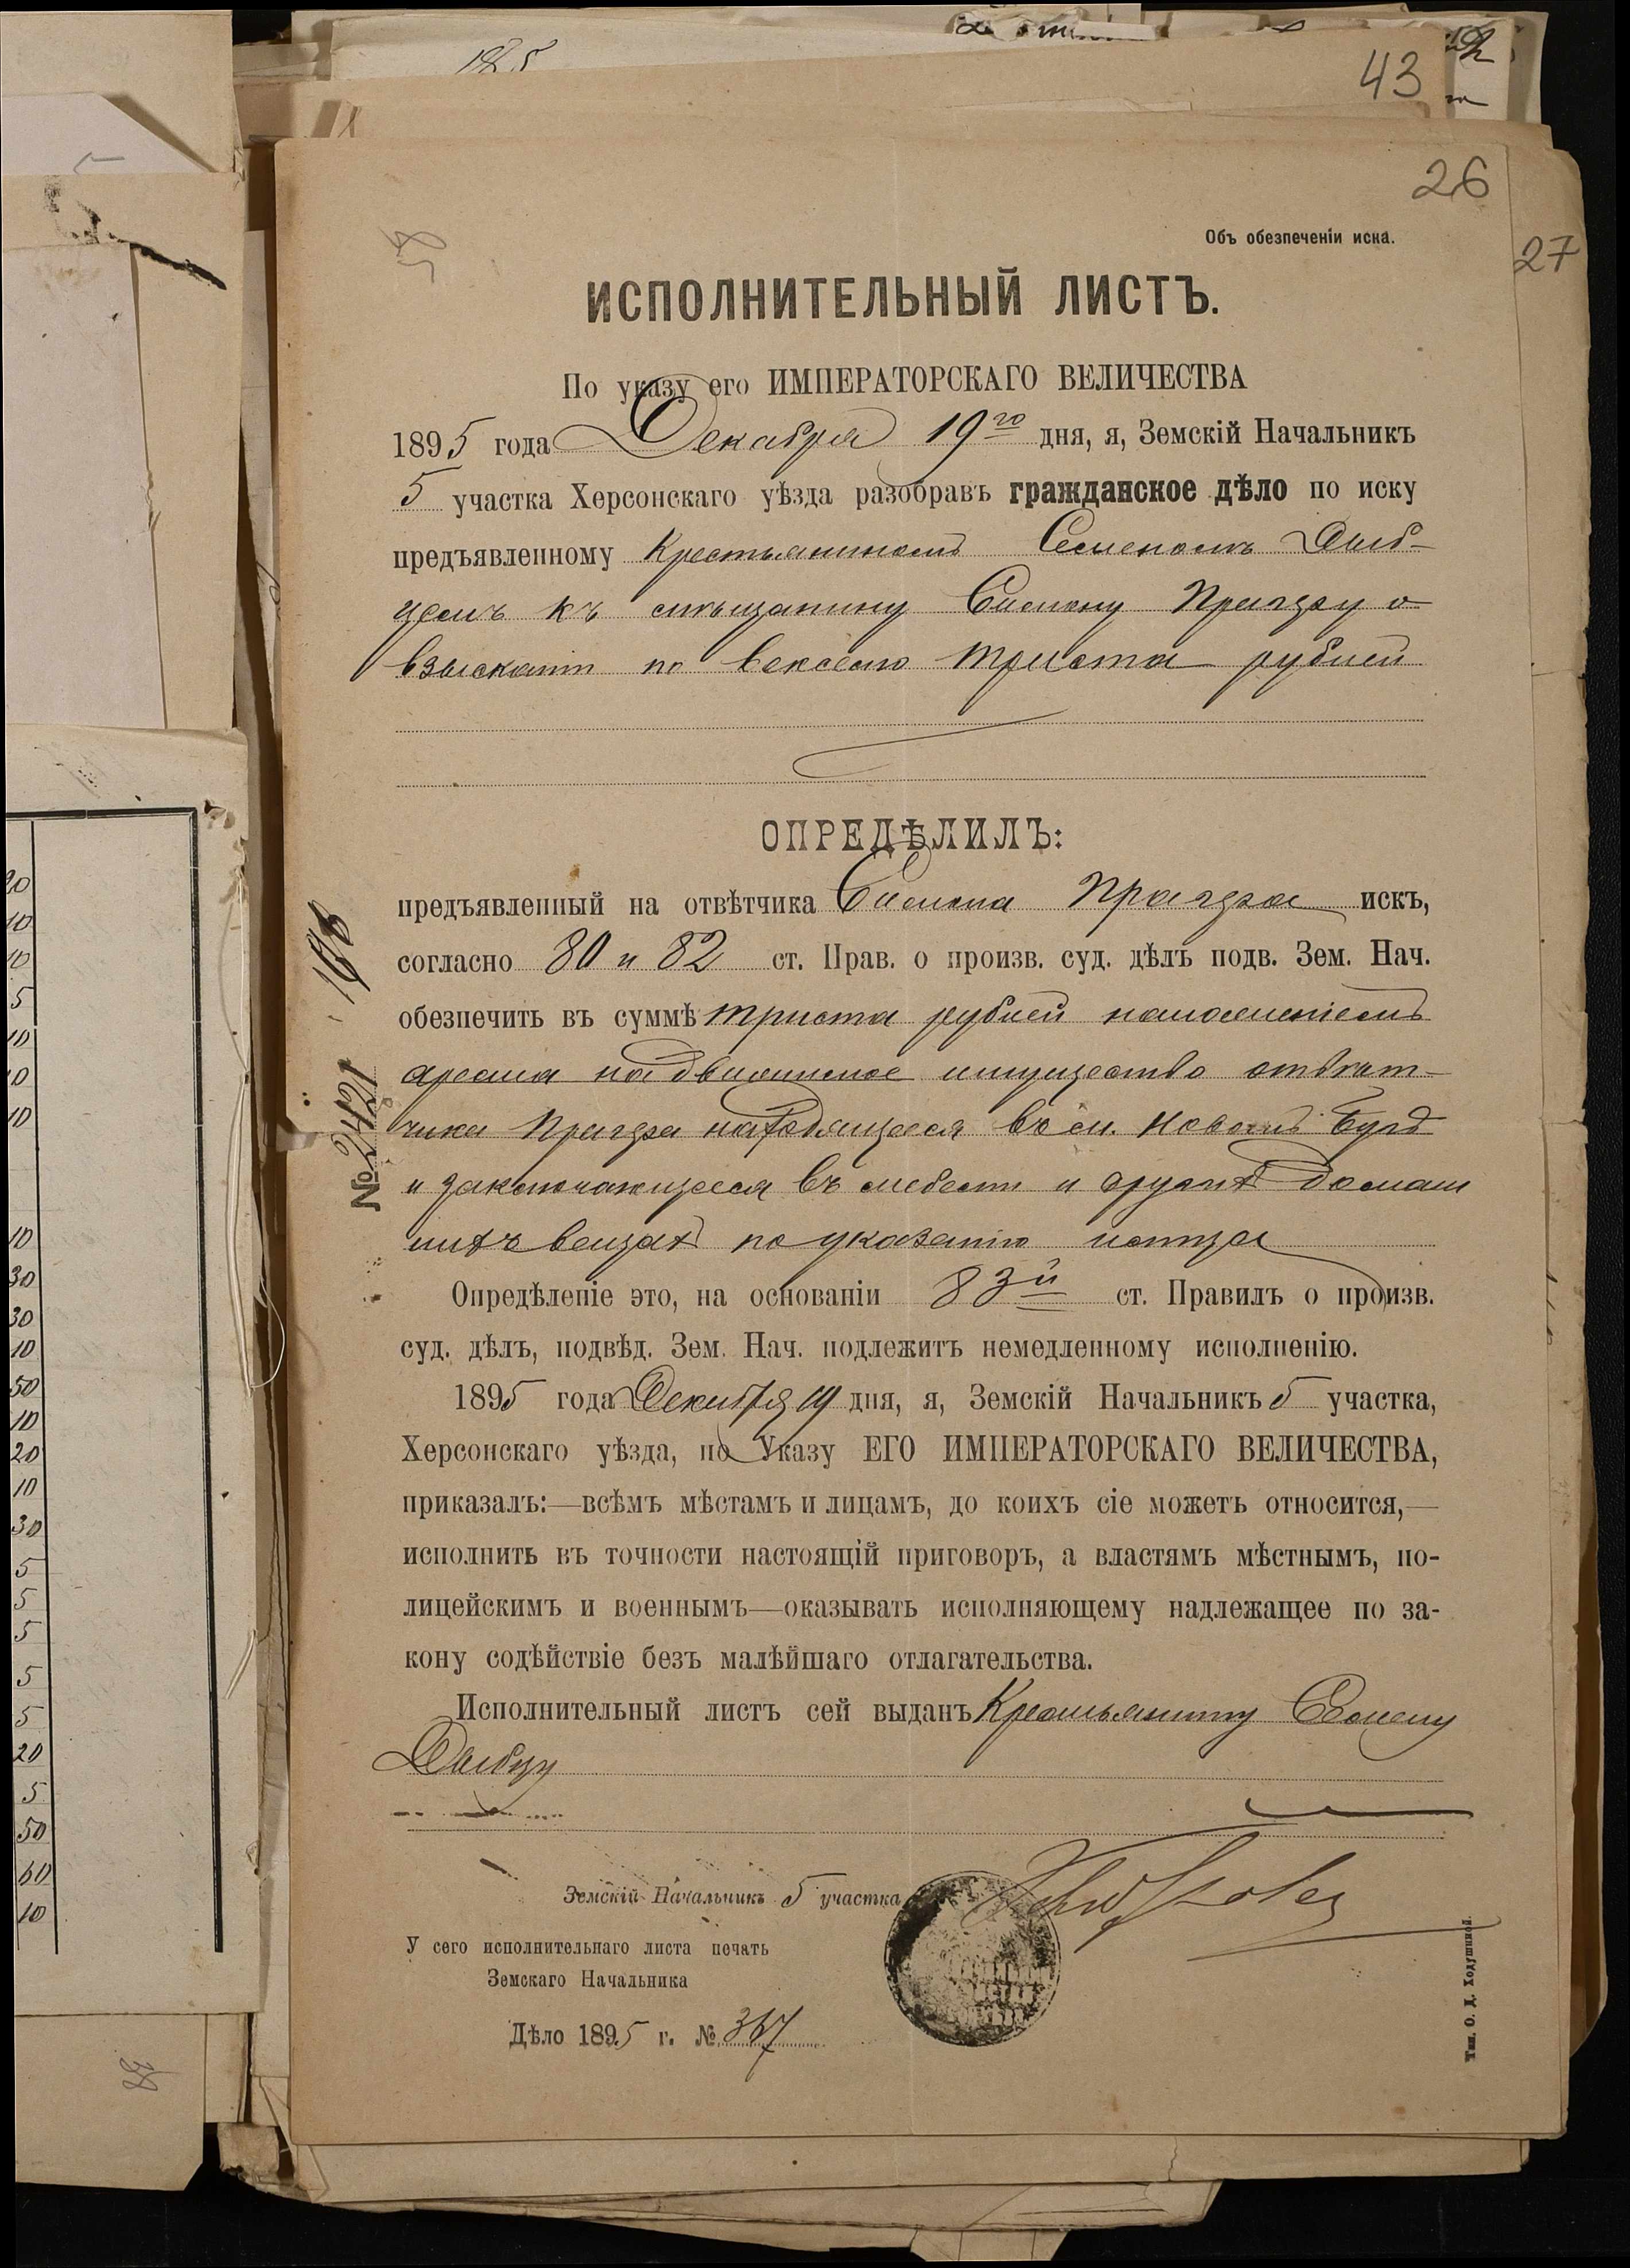 43
26
27
Объ обезпеченіи иска.
ИСПОЛНИТЕЛЬНЫЙ ЛИСТЪ.
По указу его ИМПЕРАТОРСКАГО ВЕЛИЧЕСТВА
1895 года Декабря 19го дня, я, Земскій Начальникъ
5 участка Херсонскаго уѣзда разобравъ гражданское дѣло по иску
предъявленному Крестьяниномъ Семеномъ
къ мѣщанину Симону Прагзу о
взыскании по векселю триста рублей
ОПРЕДѢЛИЛЪ:
предъявленный на отвѣтчика Симона Прагза искъ,
согласно 80 и 82 ст. Прав. о произв. суд. дѣлъ подв. Зем. Нач.
обезпечить въ суммѣ триста рублей наложеніемъ
ареста на движимое имущество отвѣт-
чика Прагза находящееся въ с. Новомъ Бугѣ
и заключающееся въ мебели и другихъ домаш
нихъ вещахъ по указанію истца
Опредѣленіе это, на основаніи 83й ст. Правилъ о произв.
суд. дѣлъ, подвѣд. Зем. Нач. подлежитъ немедленному исполненію.
1895 года Декабря 19 дня, я, Земскій Начальникъ 5 участка,
Херсонскаго уѣзда, по Указу ЕГО ИМПЕРАТОРСКАГО ВЕЛИЧЕСТВА,
приказалъ:—всѣмъ мѣстамъ и лицамъ, до коихъ сіе можетъ относится,—
исполнить въ точности настоящій приговоръ, а властямъ мѣстнымъ, по-
лицейскимъ и военнымъ—оказывать исполняющему надлежащее по за-
кону содѣйствіе безъ малѣйшаго отлагательства.
Исполнительный листъ сей выданъ Крестьянину Семену
Земскій Начальникъ 5 участка
У сего исполнительнаго листа печать
Земскаго Начальника
Дѣло 1895 г. № 367
№ 2421
Тип. О. Д. Ходушиной.
20
10
10
5
10
10
10
10
30
30
10
50
10
20
10
30
5
5
5
5
5
20
5
50
60
10